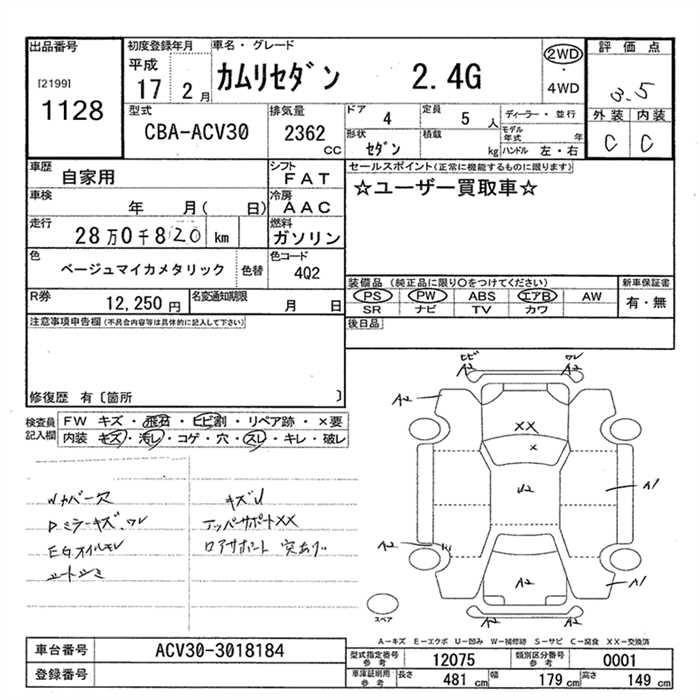 出品番号
[2199]
1128
初度登録年月
平成
17 2 月
車名・グレード
カムリセダン 2.4G
2WD
・
4WD
評価点
3.5
外装 内装
C C
型式
CBA-ACV30
排気量
2362
CC
ドア
4
定員
5 人
ディーラー・並行
形状
セダン
積載
kg
モデル
年式 年
ハンドル 左・右
車歴
自家用
シフト
FAT
セールスポイント(正常に機能するものに限ります)
☆ユーザー買取車☆
車検
年 月( 日)
冷房
AAC
走行
28万0千820 km
燃料
ガソリン
色
ベージュマイカメタリック
色替
色コード
4Q2
装備品 (純正品に限り○をつけてください)
PS PW ABS エアB AW
SR ナビ TV カワ
新車保証書
有・無
R券
12,250 円
名変通知期限
月 日
後日品
注意事項申告欄(不具合内容等は具体的に記入して下さい)
修復歴 有〔箇所 〕
検査員
記入欄
FW キズ・飛石・ヒビ割・リペア跡・×要
内装 キズ・汚レ・コゲ・穴・スレ・キレ・破レ
Wカバー欠
Dミラーキズ、ワレ
EGオイルモレ
シートシミ
キズU
アッパーサポートXX
ロアサポート 穴あり
ヒビ
A2
ワレ
A2
A2
A2
XX
X
U2
A1
A2
A2
A1
A2
A2
スペア
A-キズ E-エクボ U-凹み W-補修跡 S-サビ C-腐食 XX-交換済
車台番号
ACV30-3018184
登録番号
型式指定番号
参考
12075
類別区分番号
参考
0001
車庫証明用
参考
長さ
481 cm
幅
179 cm
高さ
149 cm